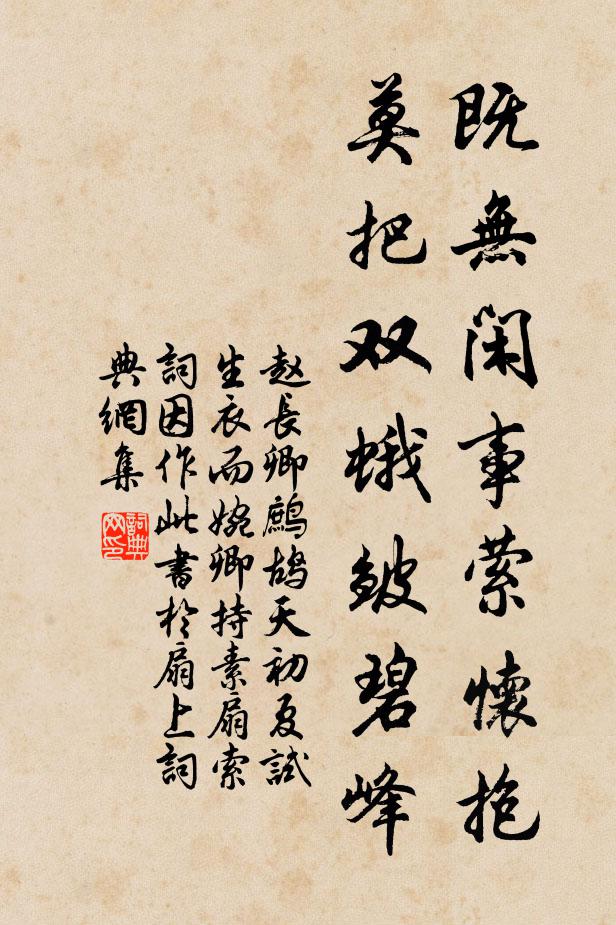 既無閑事縈懷抱
莫把双蛾皱碧峰
赵長卿鷓鴣天初夏試
生衣而婉卿持素扇索
詞因作此書於扇上詞
典網集
詞典
网印